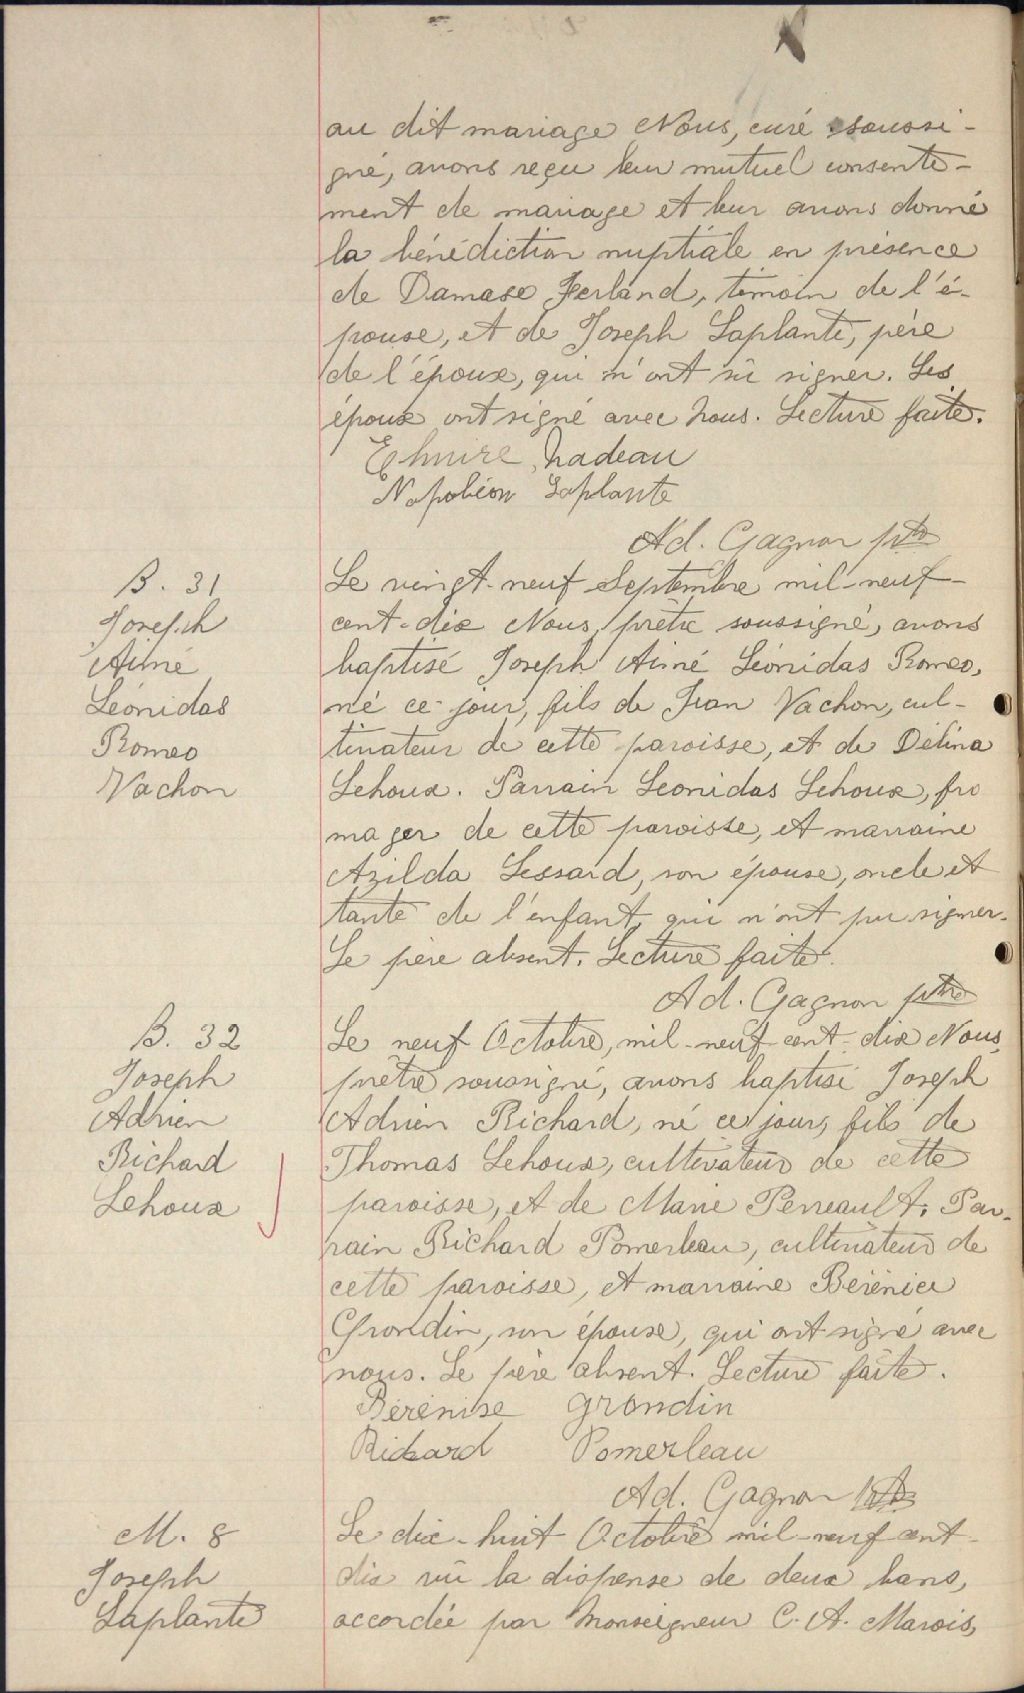 au dit mariage Nous, curé soussi-
gné, avons reçu leur mutuel consente-
ment de mariage et leur avons donné
la bénédiction nuptiale en présence
de Damase Ferland, témoin de l'é-
pouse, et de Joseph Laplante, père
de l'époux, qui n'ont su signer. Les
époux ont signé avec nous. Lecture faite.
Nadeau
Napoléon Laplante
Ad. Gagnon ptre
B. 31
Joseph
Aimé
Léonidas
Romeo
Vachon
Le vingt-neuf Septembre mil-neuf-
cent-dix Nous, prêtre soussigné, avons
baptisé Joseph Aimé Léonidas Romeo,
né ce jour, fils de Jean Vachon, cul-
tivateur de cette paroisse, et de Délina
Lehoux. Parrain Leonidas Lehoux, fro
mager de cette paroisse, et marraine
Azilda Lessard, son épouse, oncle et
tante de l'enfant, qui n'ont pu signer.
Le père absent. Lecture faite.
Ad. Gagnon ptre
B. 32
Joseph
Adrien
Richard
Lehoux
Le neuf Octobre, mil-neuf-cent-dix Nous,
prêtre soussigné, avons baptisé Joseph
Adrien Richard, né ce jour, fils de
Thomas Lehoux, cultivateur de cette
paroisse, et de Marie Perreault. Par-
rain Richard Pomerleau, cultivateur de
cette paroisse, et marraine Bérénice
Grondin, son épouse, qui ont signé avec
nous. Le père absent. Lecture faite.
Bérénise Grondin
Richard Pomerleau
Ad. Gagnon ptre
M. 8
Joseph
Laplante
Le dix-huit Octobre mil-neuf cent-
dix vû la dispense de deux bans,
accordée par Monseigneur C. A. Marois,